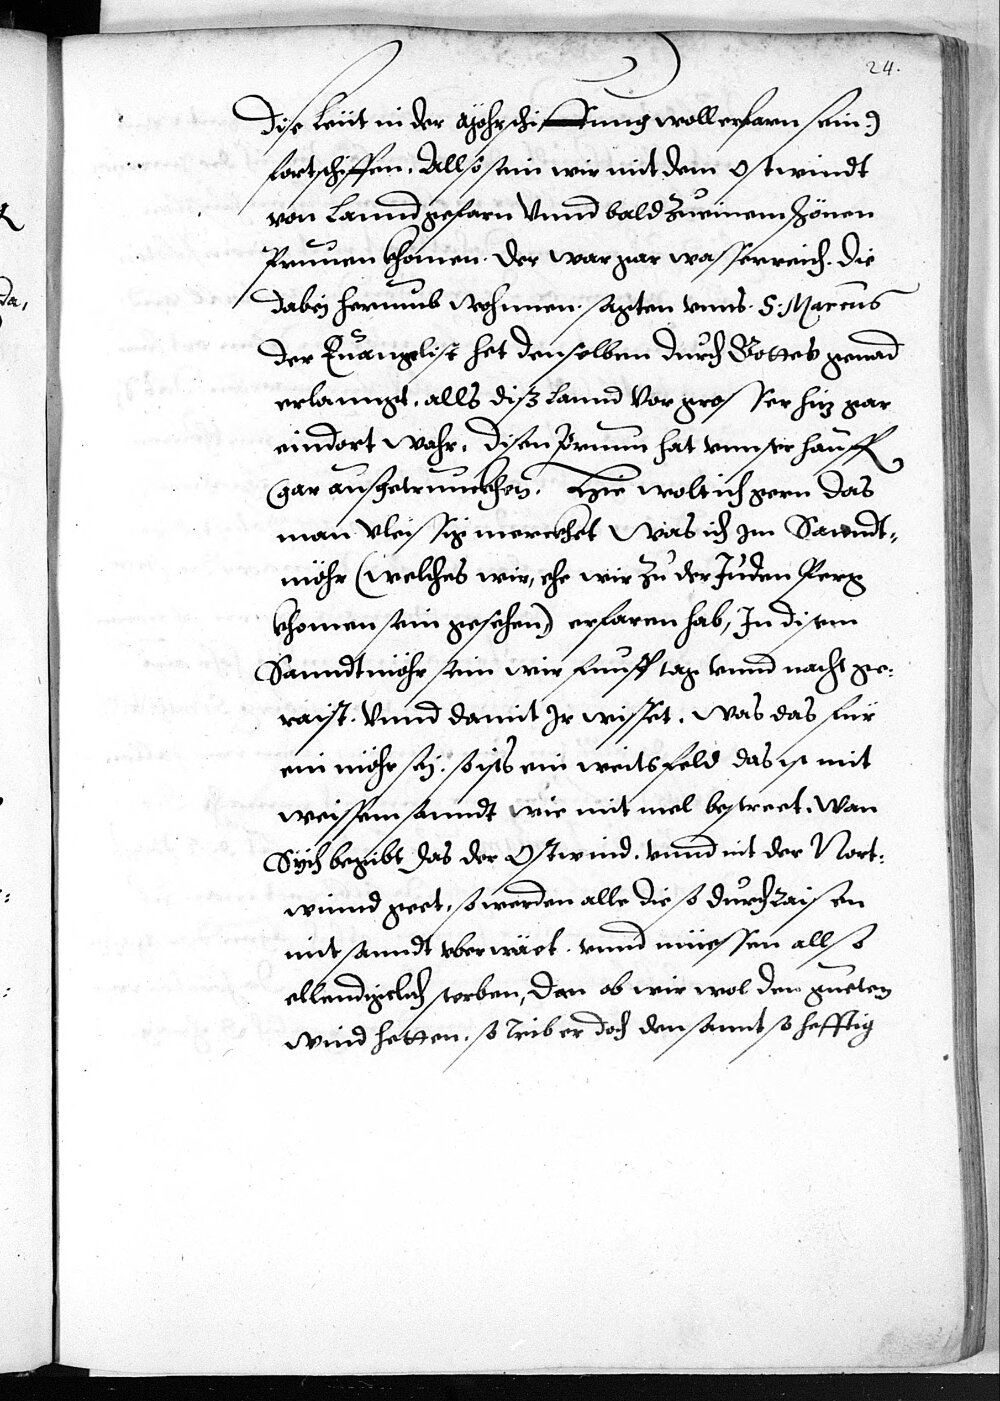 24.
Dise Leüt in der Möhrschiffung woll erfarn sein)
fortschiffen. Allso sein wir mit dem Ostwindt
von Lannd gefarn Vnnd bald Zu einem schönen
Prunnen khomen. Der war gar wasserreich. Die
dabeÿ herumb wohnnen. sagten vnns. S. Marcus
der Euangelist het denselben durch Gottes genad
erlanngt. alls diß Lannd Vor grosser hiz gar
eindort wahr. Disen Prunn hat vnnser hauff
gar außgetrunckhen. Hie wolt ich gern das
man vleissig merckhet Was ich im Sanndt-
möhr (welches wir, ehe wir Zu der Juden Perg
khomen sein gesehen) erfaren hab, In disem
Sanndtmöhr sein wir funff tag vnnd nacht ge-
raist. Vnnd damit Ir wisset. Was das für
ein möhr seÿ. so ists ein weits feld das ist mit
weissem sanndt wie mit mel bestreet. Wan
Sÿch begibt das der Ostwind. vnnd nit der Nort-
winnd geet. so werden alle die so durchRaisen
mit sanndt vberwäet. vnnd müessen allso
ellendigclich sterben, Dan ob wir wol den gueten
wind hetten. so trib er doch den sannt so hefftig